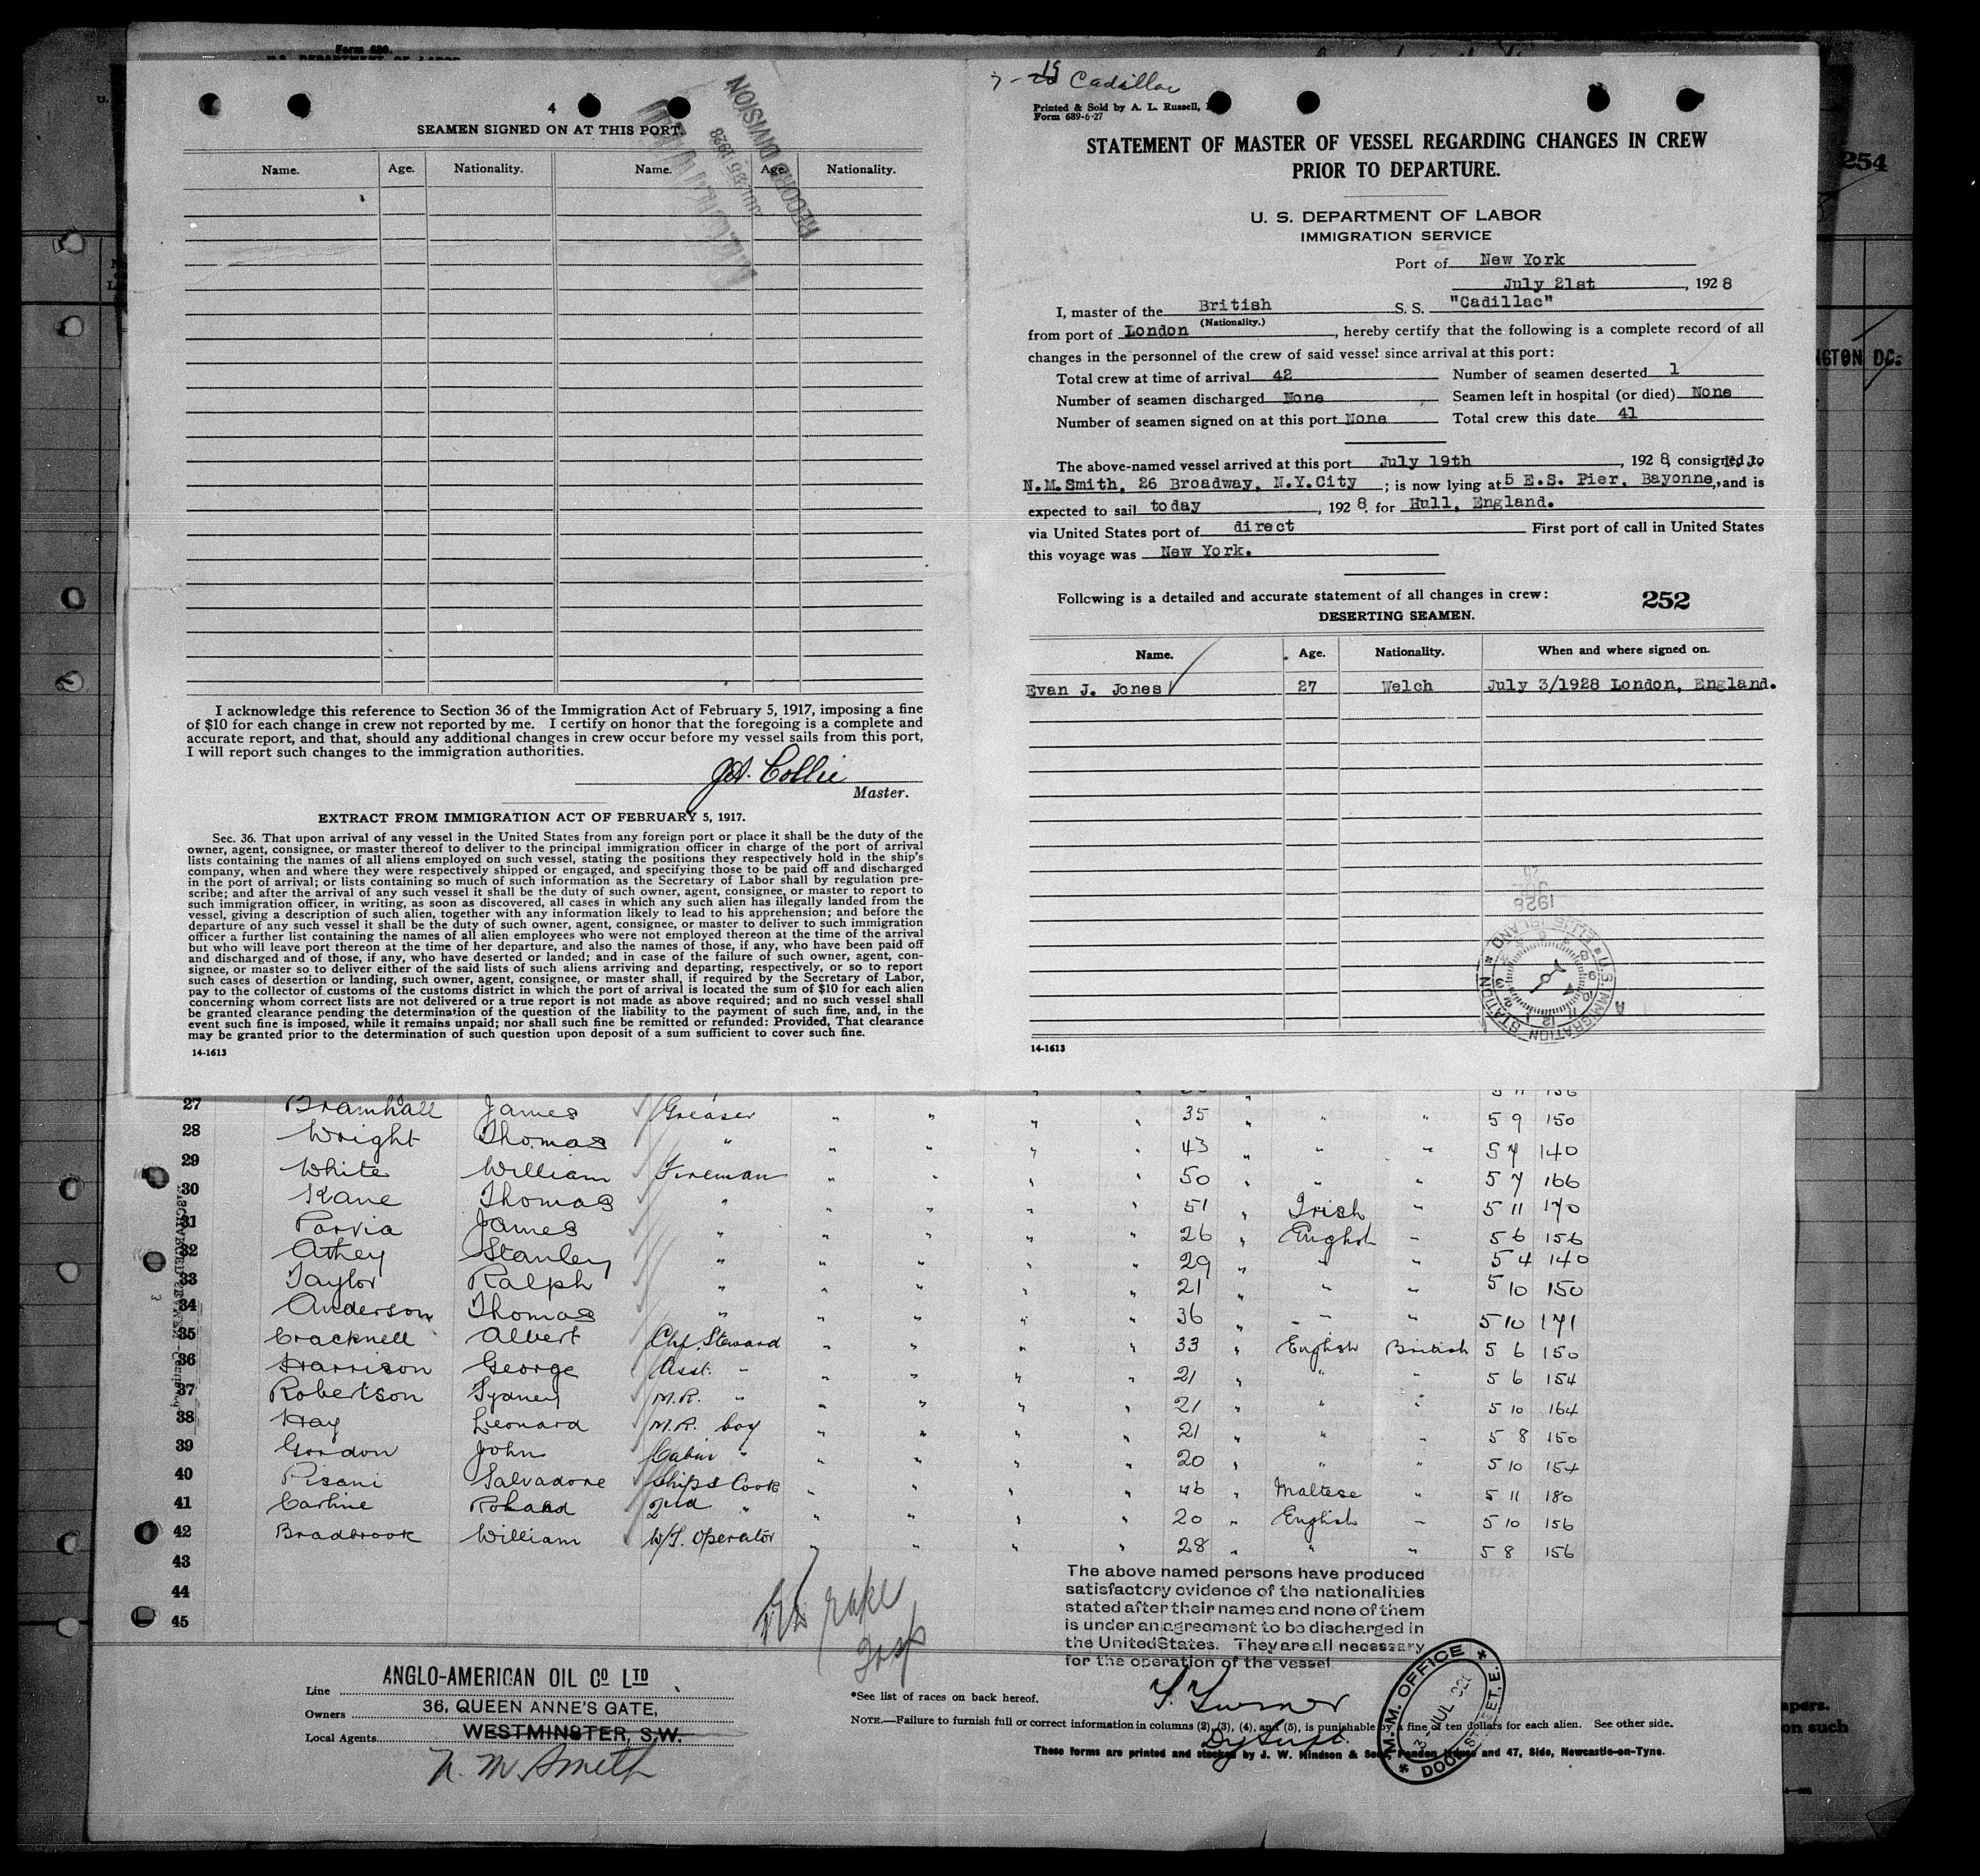 Form 689.
4
SEAMEN SIGNED ON AT THIS PORT.
RECORD DIVISION
JUL 25 1928
Name. Age. Nationality. Name. Age. Nationality.
I acknowledge this reference to Section 36 of the Immigration Act of February 5, 1917, imposing a fine
of $10 for each change in crew not reported by me. I certify on honor that the foregoing is a complete and
accurate report, and that, should any additional changes in crew occur before my vessel sails from this port,
I will report such changes to the immigration authorities.
Collie
Master.
EXTRACT FROM IMMIGRATION ACT OF FEBRUARY 5, 1917.
Sec. 36. That upon arrival of any vessel in the United States from any foreign port or place it shall be the duty of the
owner, agent, consignee, or master thereof to deliver to the principal immigration officer in charge of the port of arrival
lists containing the names of all aliens employed on such vessel, stating the positions they respectively hold in the ship's
company, when and where they were respectively shipped or engaged, and specifying those to be paid off and discharged
in the port of arrival; or lists containing so much of such information as the Secretary of Labor shall by regulation pre-
scribe; and after the arrival of any such vessel it shall be the duty of such owner, agent, consignee, or master to report to
such immigration officer, in writing, as soon as discovered, all cases in which any such alien has illegally landed from the
vessel, giving a description of such alien, together with any information likely to lead to his apprehension; and before the
departure of any such vessel it shall be the duty of such owner, agent, consignee, or master to deliver to such immigration
officer a further list containing the names of all alien employees who were not employed thereon at the time of the arrival
but who will leave port thereon at the time of her departure, and also the names of those, if any, who have been paid off
and discharged and of those, if any, who have deserted or landed; and in case of the failure of such owner, agent, con-
signee, or master so to deliver either of the said lists of such aliens arriving and departing, respectively, or so to report
such cases of desertion or landing, such owner, agent, consignee, or master shall, if required by the Secretary of Labor,
pay to the collector of customs of the customs district in which the port of arrival is located the sum of $10 for each alien
concerning whom correct lists are not delivered or a true report is not made as above required; and no such vessel shall
be granted clearance pending the determination of the question of the liability to the payment of such fine, and, in the
event such fine is imposed, while it remains unpaid; nor shall such fine be remitted or refunded: Provided, That clearance
may be granted prior to the determination of such question upon deposit of a sum sufficient to cover such fine.
14-1613
7-19 Cadillac
Printed & Sold by A. L. Russell,
Form 689-6-27
STATEMENT OF MASTER OF VESSEL REGARDING CHANGES IN CREW
PRIOR TO DEPARTURE.
U. S. DEPARTMENT OF LABOR
IMMIGRATION SERVICE
Port of New York
July 21st, 1928
I, master of the British S. S. "Cadillac"
(Nationality.)
from port of London, hereby certify that the following is a complete record of all
changes in the personnel of the crew of said vessel since arrival at this port:
Total crew at time of arrival 42 Number of seamen deserted 1
Number of seamen discharged None Seamen left in hospital (or died) None
Number of seamen signed on at this port None Total crew this date 41
The above-named vessel arrived at this port July 19th, 1928, consigned to
N.M.Smith, 26 Broadway, N.Y.City; is now lying at 5 E.S. Pier, Bayonne, N.J. and is
expected to sail today, 1928. for Hull, England.
via United States port of direct First port of call in United States
this voyage was New York.
Following is a detailed and accurate statement of all changes in crew: 252
DESERTING SEAMEN.
Name. Age. Nationality. When and where signed on.
Evan J. Jones 27 Welch July 3/1928 London, England.
U.S. IMMIGRATION STATION ELLIS ISLAND
1928 JUL 25
14-1613
254
GTON DC.
27 Bramhall James Greaser " " " 35 " " " 5 9 150
28 Wright Thomas " " " " 43 " " " 5 7 140
29 White William Fireman " " " 50 " " " 5 7 166
30 Kane Thomas " " " " 51 " Irish " 5 11 170
31 Parvia James " " " " 26 " English " 5 6 156
32 Athey Stanley " " " " 29 " " " 5 4 140
33 Taylor Ralph " " " " 21 " " " 5 10 150
34 Anderson Thomas " " " " 36 " " " 5 10 171
35 Cracknell Albert Chf. Steward " " " 33 " English British 5 6 150
36 Harrison George Asst. " " " " 21 " " " 5 6 154
37 Robertson Sydney M.R. " " " " 21 " " " 5 10 164
38 Hay Leonard M.R. boy " " " 21 " " " 5 8 150
39 Gordon John Cabin " " " " 20 " " " 5 10 154
40 Pisani Salvadore Ships Cook " " " 46 " Maltese " 5 11 180
41 Carline Roland 2nd " " " " 20 " English " 5 10 156
42 Bradbrook William W/T. Operator " " " 28 " " " 5 8 156
43
44
45
The above named persons have produced
satisfactory evidence of the nationalities
stated after their names and none of them
is under an agreement to be discharged in
the United States. They are all necessary
for the operation of the vessel
Line ANGLO-AMERICAN OIL CO LTD
Owners 36, QUEEN ANNE'S GATE,
Local Agents WESTMINSTER, S.W.
N. M. Smith
*See list of races on back hereof.
T. Turner
Dy Supt.
NOTE.—Failure to furnish full or correct information in columns (2), (3), (4), and (5), is punishable by a fine of ten dollars for each alien. See other side.
These forms are printed and stocked by J. W. Hindson & and 47, Side, Newcastle-on-Tyne.
M.M. OFFICE
3-JUL
DOCK ST. E.
apers.
on such